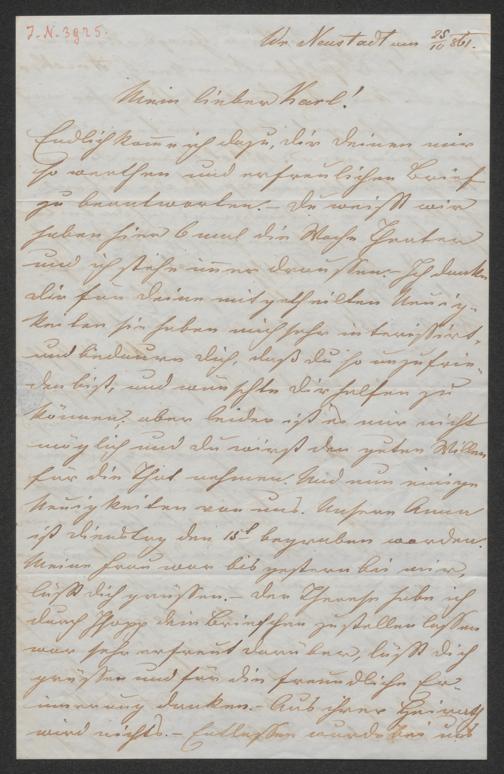 J.N. 3925.
Wr. Neustadt am 25/10 861.
Mein lieber Karl!
Endlich komme ich dazu, dir deinen mir
so werthen und erfreulichen Brief
zu beantworten. – Du weißt wir
haben hier 6 mal die Woche Theater
und ich stehe immer draussen. – Ich danke
dir für deine mitgetheilten Neuig-
keiten sie haben mich sehr interissirt,
und bedaure dich, daß du so unzufrie-
den bist, und wünschte dir helfen zu
können, aber leider ist es mir nicht
möglich und du wirst den guten Willen
für die That nehmen. Und nun einige
Neuigkeiten von uns. Unsere Anna
ist Dienstag den 15t begraben worden.
Meine Frau war bis gestern bei mir,
läßt dich grüssen. – Der Therese habe ich
durch Popp dein Briefchen zustellen lassen
war sehr erfreut darüber, läßt dich
grüssen und für die freundliche Er-
innerung danken. – Aus ihrer Heirath
wird nichts. – Entlassen wurde bei uns